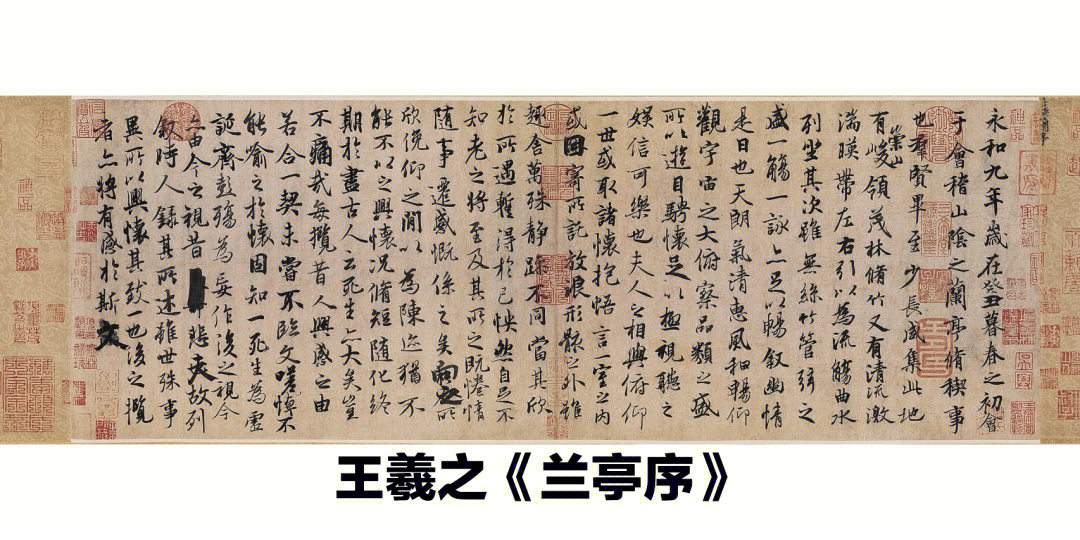 永和九年歲在癸丑暮春之初會
于會稽山陰之蘭亭脩稧事
也羣賢畢至少長咸集此地
有崇山峻領茂林脩竹又有清流激
湍暎帶左右引以為流觴曲水
列坐其次雖無絲竹管弦之
盛一觴一詠亦足以暢叙幽情
是日也天朗氣清惠風和暢仰
觀宇宙之大俯察品類之盛
所以遊目騁懷足以極視聽之
娛信可樂也夫人之相與俯仰
一世或取諸懷抱悟言一室之内
或因寄所託放浪形骸之外雖
趣舍萬殊静躁不同當其欣
於所遇蹔得於己怏然自足不
知老之將至及其所之既惓情
随事遷感慨係之矣向之所
欣俛仰之閒以為陳迹猶不
能不以之興懷况脩短随化終
期於盡古人云死生亦大矣豈
不痛哉每攬昔人興感之由
若合一契未嘗不臨文嗟悼不
能喻之於懷固知一死生為虛
誕齊彭殤為妄作後之視今
亦由今之視昔悲夫故列
叙時人録其所述雖世殊事
異所以興懷其致一也後之攬
者亦將有感於斯文
王羲之《兰亭序》